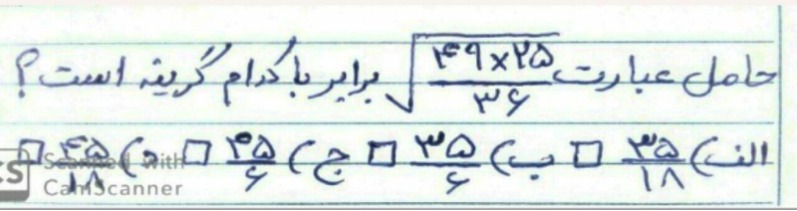 حاصل عبارت √(۴۹×۲۵/۳۶) برابر با کدام گزینه است؟
الف) ۳۵/۱۸ □ ب) ۳۵/۶ □ ج) ۴۵/۶ □ د) ۴۵/۱۸ □
CS Scanned with
CamScanner